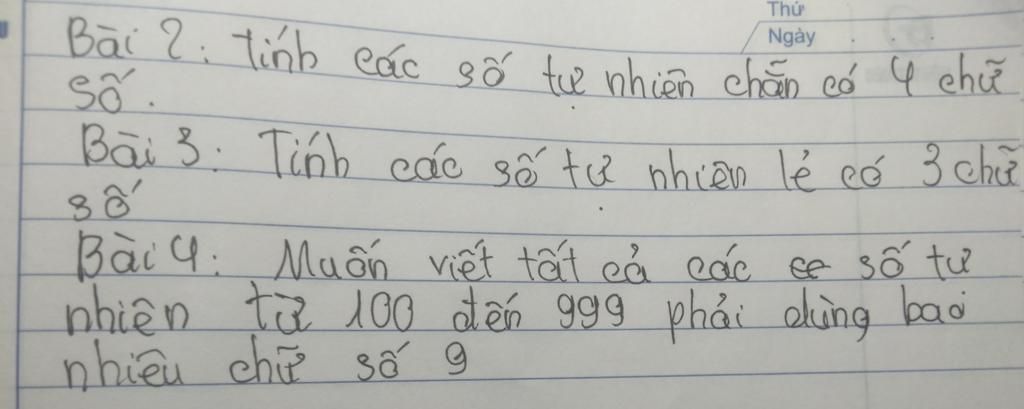 Thứ
Ngày
Bài 2: Tính các số tự nhiên chẵn có 4 chữ
số.
Bài 3: Tính các số tự nhiên lẻ có 3 chữ
số
Bài 4: Muốn viết tất cả các số tự
nhiên từ 100 đến 999 phải dùng bao
nhiêu chữ số 9